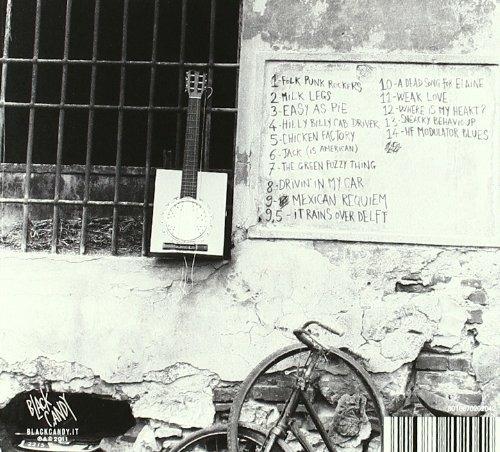 1 - FOLK PUNK ROCKERS
2 MILK LEGS
3 - EASY AS PIE
4 - HILLY BILLY CAB DRIVER
5 - CHICKEN FACTORY
6 - JACK (IS AMERICAN)
7 - THE GREEN FUZZY THING
8 - DRIVIN' IN MY CAR
9 - MEXICAN REQUIEM
9,5 - IT RAINS OVER DELFT
10 - A DEAD SONG FOR ELAINE
11 - WEAK LOVE
12 - WHERE IS MY HEART?
13 - SNEAKY BEHAVIOUR
14 - HF MODULATOR BLUES
BLACK
CANDY
BLACKCANDY.IT
2011